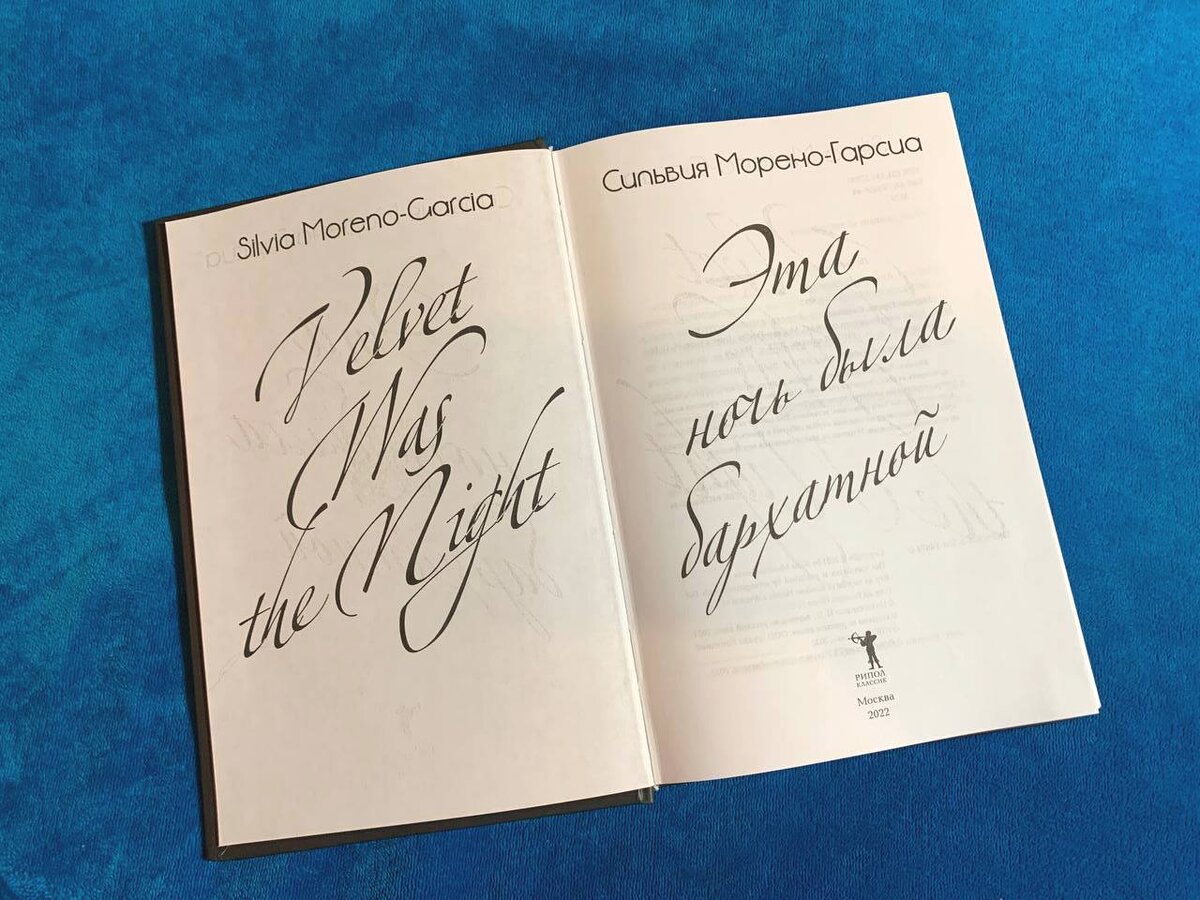 Silvia Moreno-Garcia
Velvet
Was
the Night
Сильвия Морено-Гарсиа
Эта
ночь была
бархатной
РИПОЛ
КЛАССИК
Москва
2022